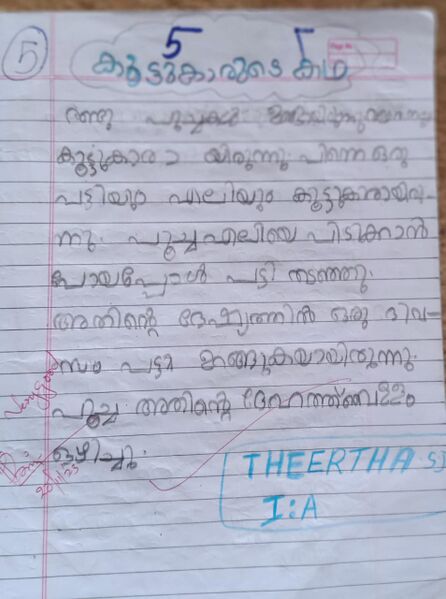 5
5
കൂട്ടുകാരുടെ കഥ
രണ്ടു പൂച്ചകൾ
കൂട്ടുകാരാ യിരുന്നു. പിന്നെ ഒരു
പട്ടിയും എലിയും കൂട്ടുകാരായിരു
ന്നു. പൂച്ച എലിയെ പിടിക്കാൻ
പോയപ്പോൾ പട്ടി തടഞ്ഞു.
അതിന്റെ ദേഷ്യത്തിൽ ഒരു ദിവ-
സം പട്ടി ഉറങ്ങുകയായിരുന്നു.
പൂച്ച അതിന്റെ ദേഹത്ത് വെള്ളം
ഒഴിച്ചു.
Very good
THEERTHA SJ
I:A